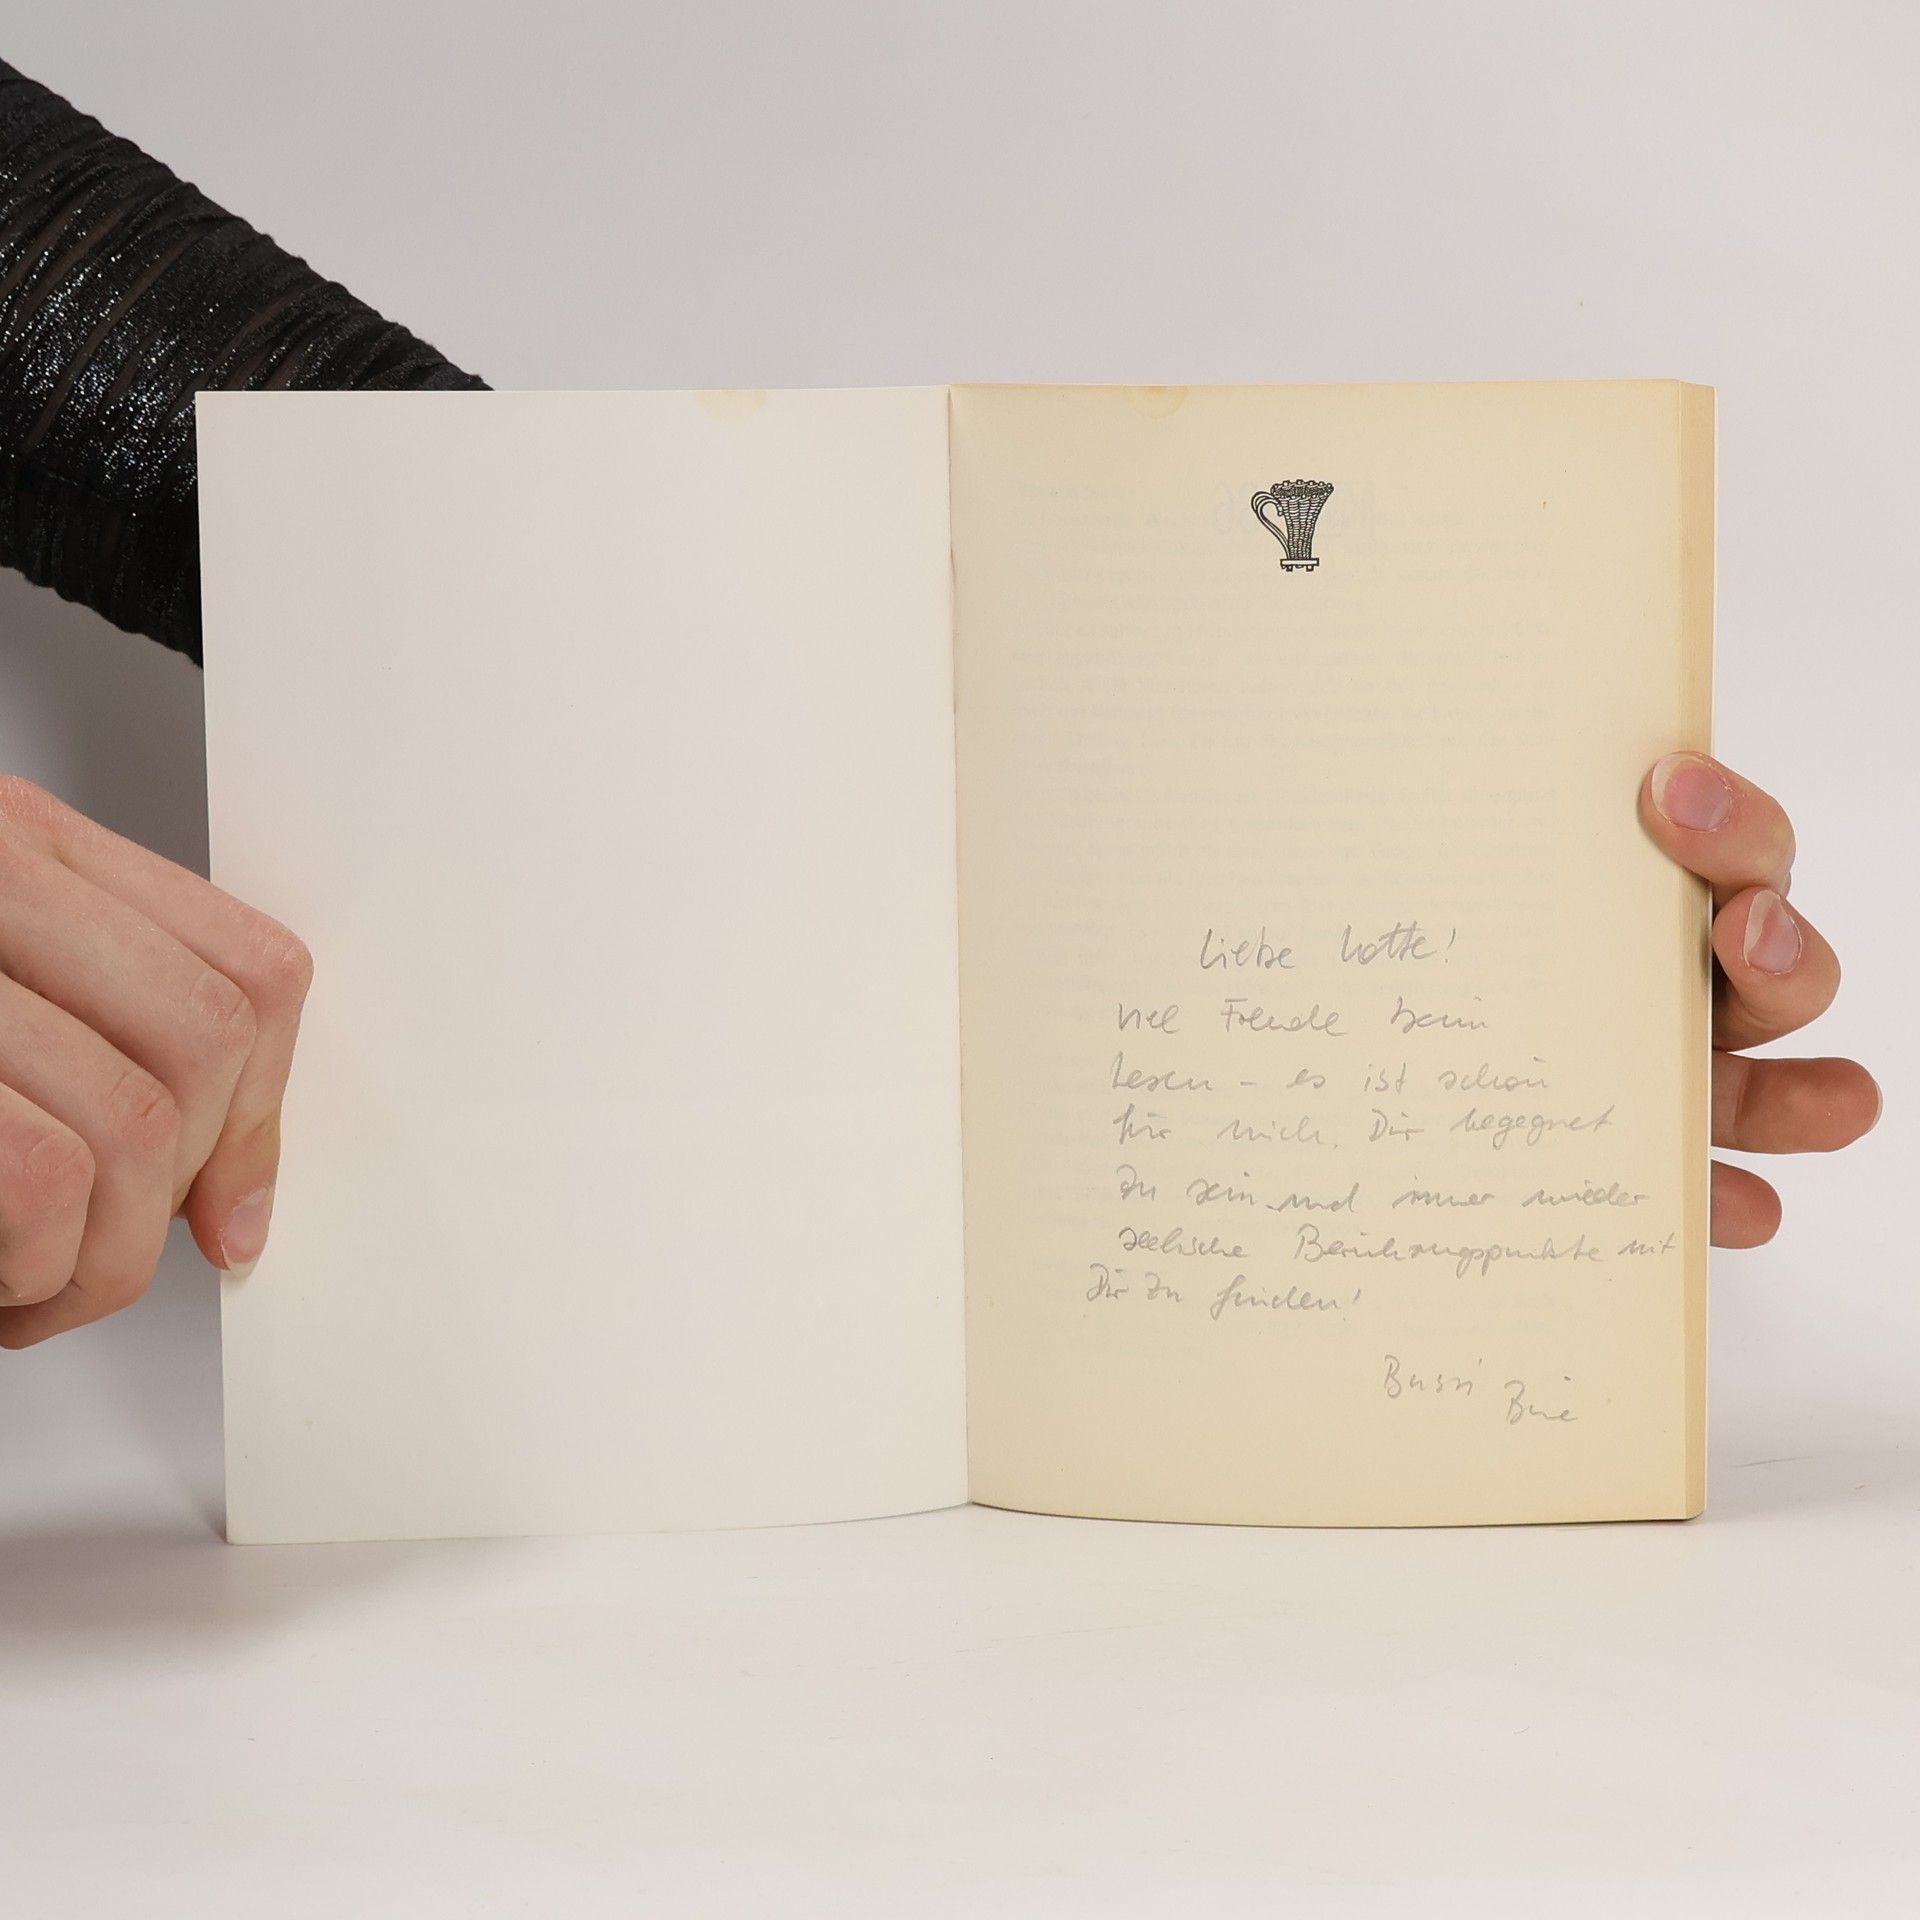 Liebe Lotte!
viel Freude beim
Lesen – es ist schön
für mich, Dir begegnet
zu sein und immer wieder
seelische Berührungspunkte mit
Dir zu finden!
Bussi